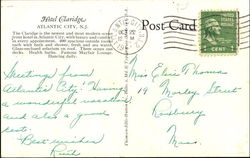 Hotel Claridge
ATLANTIC CITY, N.J.
The Claridge is the newest and most modern ocean
front hotel in Atlantic City, with luxury and comfort
in every appointment. 400 spacious outside rooms
each with bath and shower, fresh and sea water.
Glass-enclosed solarium on roof. Three ocean
decks. Health baths. Famous Mayfair Lounge.
Dancing daily.
Post Card
CENT
Greetings from
Atlantic City. Having
a wonderful vacation
and also a good
rest.
Best wishes
Ruth
Miss Elsie Thomas
19 Worley Street
Roxbury
Mass.